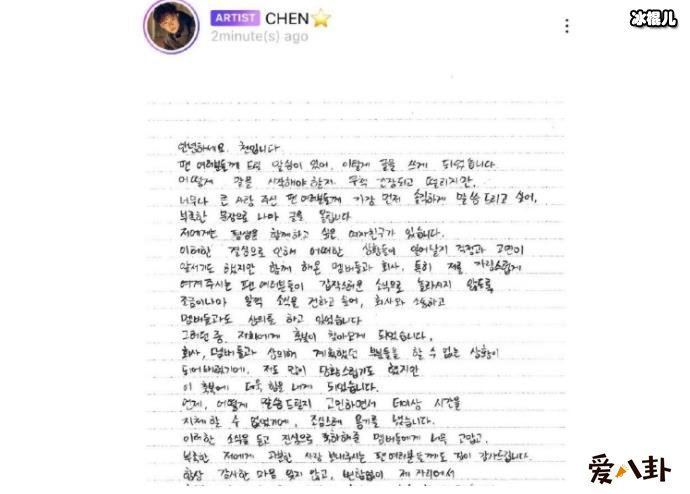 冰棍儿
ARTIST CHEN⭐
2minute(s) ago
안녕하세요. 첸입니다
팬 여러분들께 드릴 말씀이 있어, 이렇게 글을 쓰게 되었습니다
어떻게 말을 시작해야 할지 무척 긴장되고 떨리지만,
너무나 큰 사랑 주신 팬 여러분들께 가장 먼저 솔직하게 말씀 드리고 싶어,
부족한 문장으로 나마 글을 올립니다
저에게는 평생을 함께하고 싶은 여자친구가 있습니다.
이러한 결심으로 인해 어떠한 상황들이 일어날지 걱정과 고민이
앞서기도 했지만 함께 해온 멤버들과 회사, 특히 저를 자랑스럽게
여겨주시는 팬 여러분들이 갑작스러운 소식으로 놀라시지 않도록
조금이나마 일찍 소식을 전하고 싶어, 회사와 소통하고
멤버들과도 상의를 하고 있었습니다
그러던 중, 저희에게 축복이 찾아오게 되었습니다,
회사, 멤버들과 상의해 계획했던 부분들을 할 수 없는 상황이
되어버렸기에, 저도 많이 당황스럽기도 했지만
이 축복에 더욱 힘을 내게 되었습니다.
언제, 어떻게 말씀드릴지 고민하면서 더이상 시간을
지체할 수 없었기에, 조심스레 용기를 냈습니다.
이러한 소식을 듣고 진심으로 축하해준 멤버들에게 너무 고맙고,
부족한 저에게 과분한 사랑 보내주시는 팬 여러분들께도 깊이 감사드립니다.
항상 감사한 마음 잊지 않고, 변함없이 제 자리에서
爱八卦